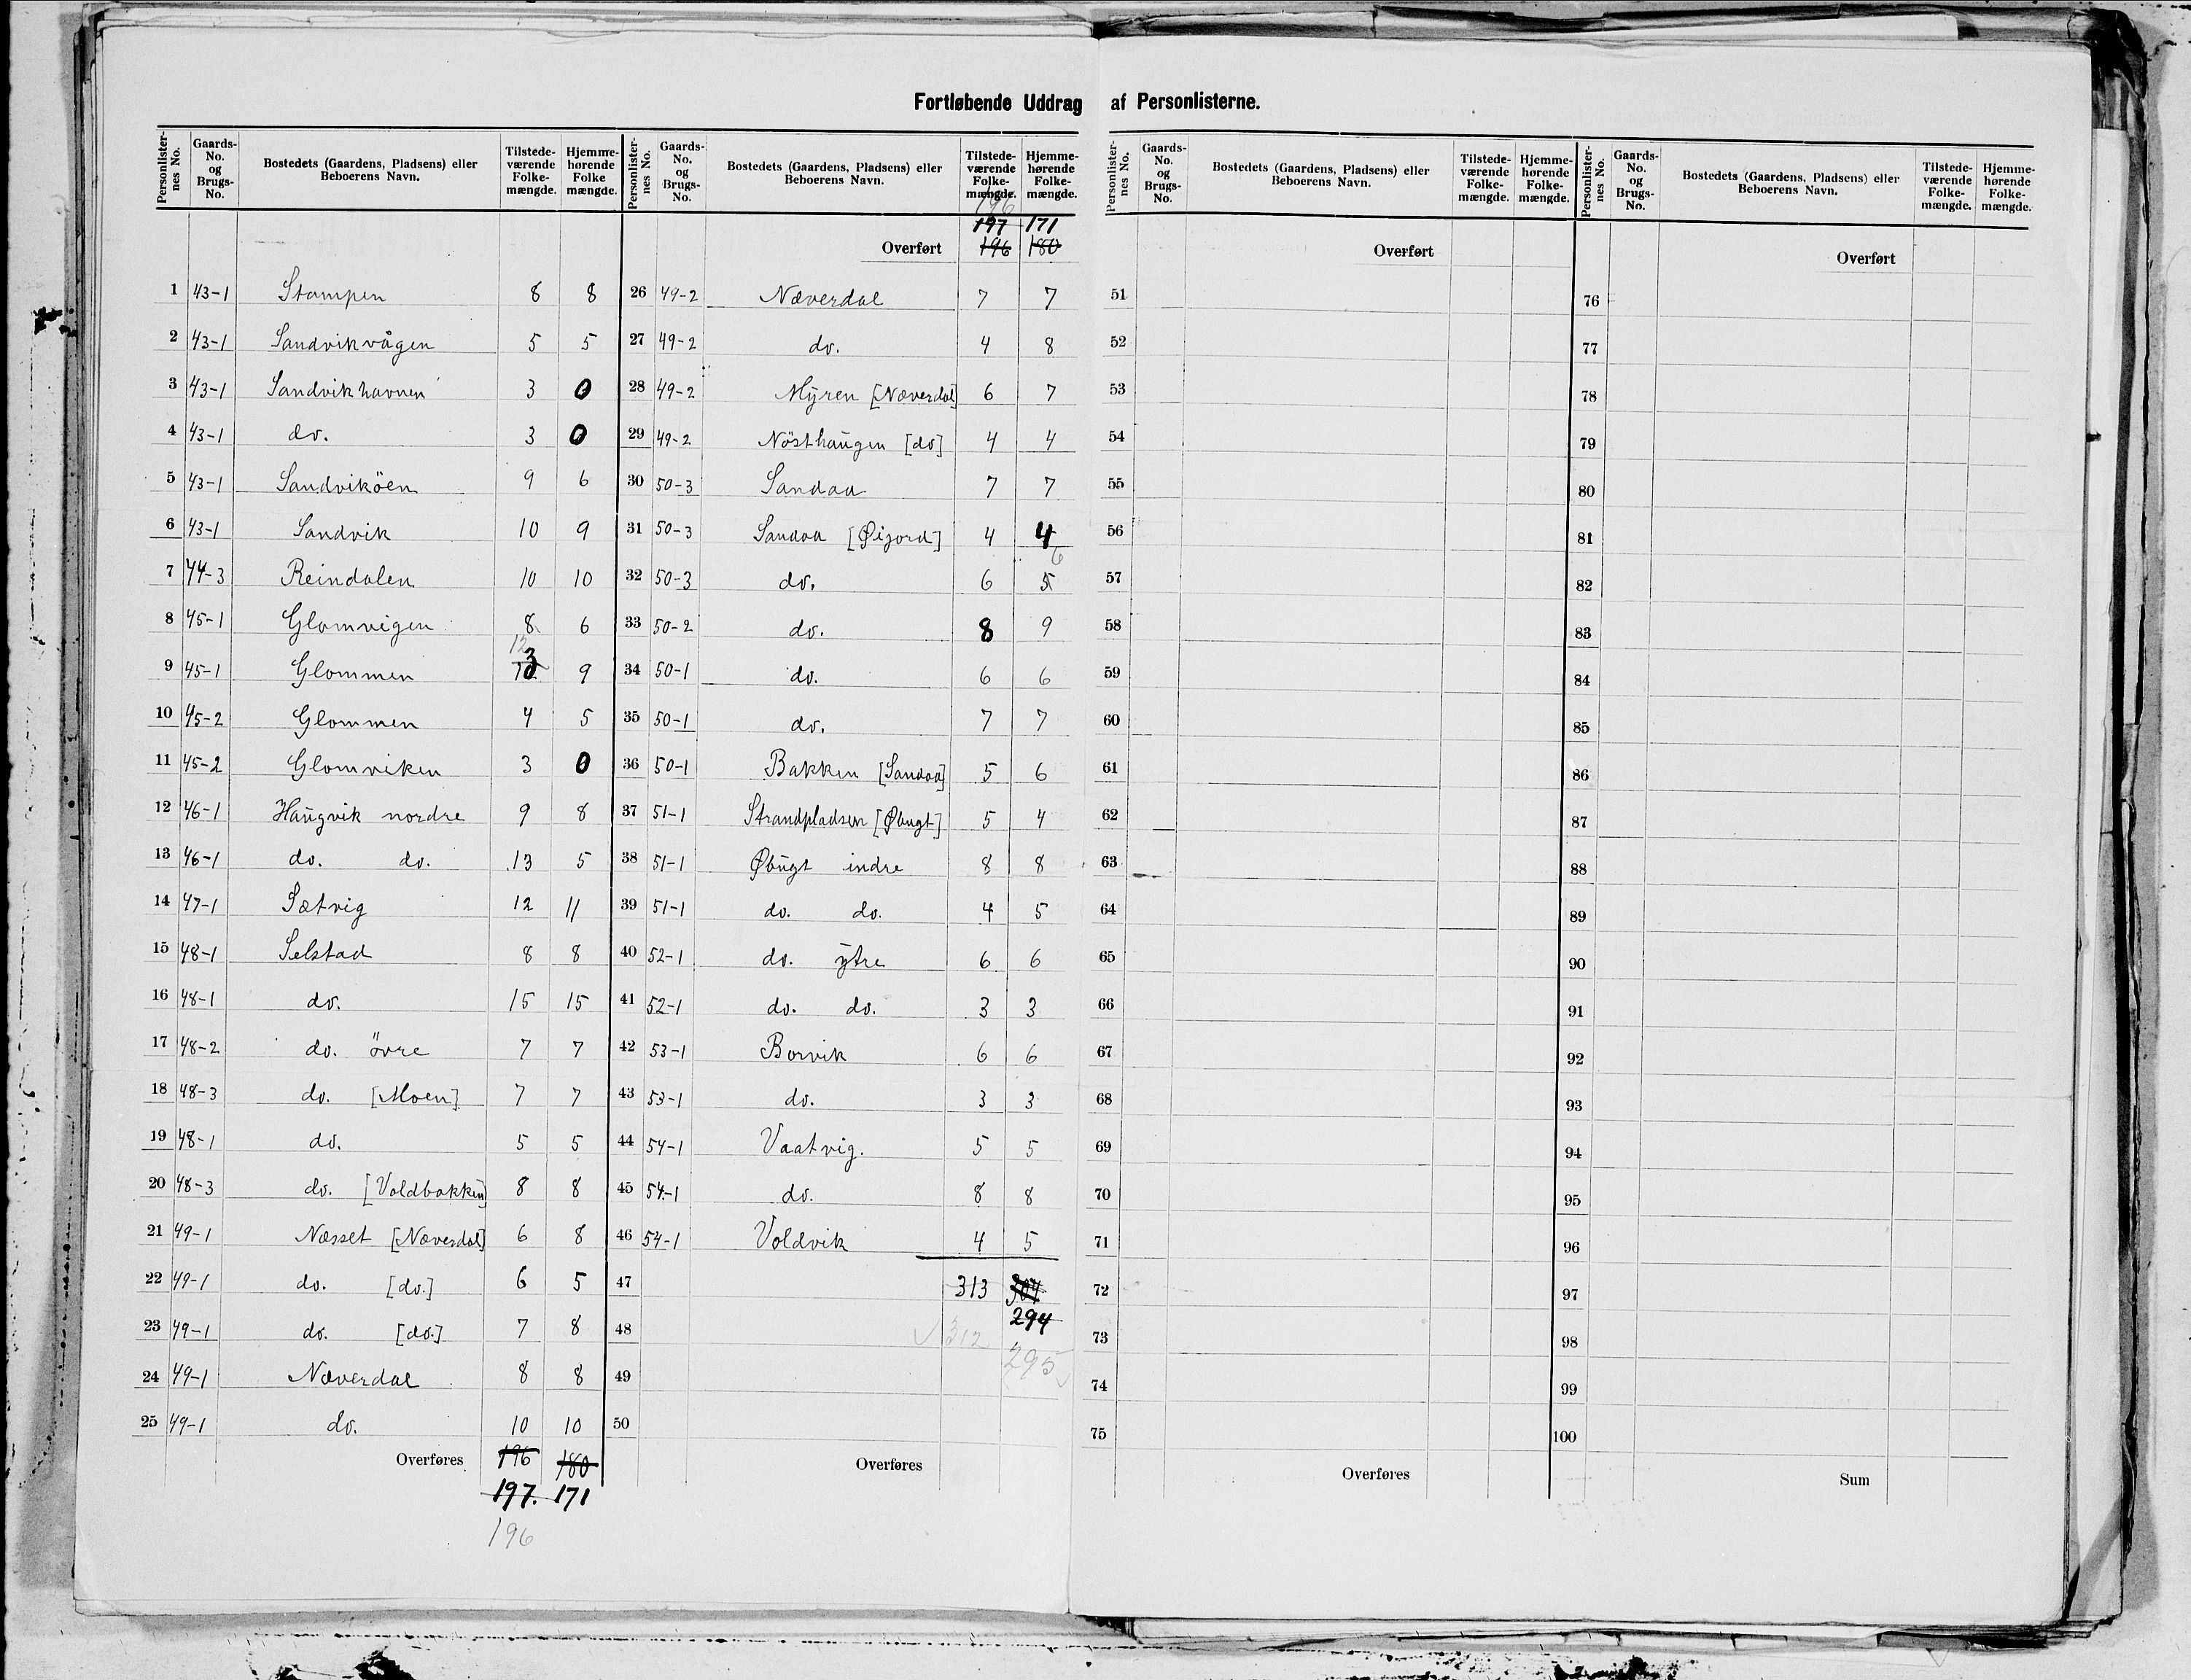 Fortløbende Uddrag af Personlisterne.
Personlisternes No. | Gaards-No. og Brugs-No. | Bostedets (Gaardens, Pladsens) eller Beboerens Navn. | Tilstedeværende Folkemængde. | Hjemmehørende Folkemængde.
1 43-1 Stampen 8 8
2 43-1 Sandvikvågen 5 5
3 43-1 Sandvikhavnen 3 0
4 43-1 do. 3 0
5 43-1 Sandviköen 9 6
6 43-1 Sandvik 10 9
7 44-3 Reindalen 10 10
8 45-1 Glomvigen 8 6
12
9 45-1 Glommen 13 9
10 45-2 Glommen 4 5
11 45-2 Glomviken 3 0
12 46-1 Haugvik nordre 9 8
13 46-1 do. do. 13 5
14 47-1 Sætvig 12 11
15 48-1 Selstad 8 8
16 48-1 do. 15 15
17 48-2 do. övre 7 7
18 48-3 do. [Moen] 7 7
19 48-1 do. 5 5
20 48-3 do. [Voldbakken] 8 8
21 49-1 Næsset [Næverdal] 6 8
22 49-1 do. [do.] 6 5
23 49-1 do. [do.] 7 8
24 49-1 Næverdal 8 8
25 49-1 do. 10 10
Overføres 196 180
197. 171
196
Personlisternes No. | Gaards-No. og Brugs-No. | Bostedets (Gaardens, Pladsens) eller Beboerens Navn. | Tilstedeværende Folkemængde. | Hjemmehørende Folkemængde.
196
197 171
Overført 196 180
26 49-2 Næverdal 7 7
27 49-2 do. 4 8
28 49-2 Myren [Næverdal] 6 7
29 49-2 Nösthaugen [do] 4 4
30 50-3 Sandaa 7 7
31 50-3 Sandaa [Øijord] 4 4
6
32 50-3 do. 6 5
33 50-2 do. 8 9
34 50-1 do. 6 6
35 50-1 do. 7 7
36 50-1 Bakken [Sandaa] 5 6
37 51-1 Strandpladsen [Øbugt] 5 4
38 51-1 Øbugt indre 8 8
39 51-1 do. do. 4 5
40 52-1 do. ytre 6 6
41 52-1 do. do. 3 3
42 53-1 Borvik 6 6
43 53-1 do. 3 3
44 54-1 Vaatvig. 5 5
45 54-1 do. 8 8
46 54-1 Voldvik 4 5
47 313 304
294
48 312
295
49
50
Overføres
Personlisternes No. | Gaards-No. og Brugs-No. | Bostedets (Gaardens, Pladsens) eller Beboerens Navn. | Tilstedeværende Folkemængde. | Hjemmehørende Folkemængde.
Overført
51
52
53
54
55
56
57
58
59
60
61
62
63
64
65
66
67
68
69
70
71
72
73
74
75
Overføres
Personlisternes No. | Gaards-No. og Brugs-No. | Bostedets (Gaardens, Pladsens) eller Beboerens Navn. | Tilstedeværende Folkemængde. | Hjemmehørende Folkemængde.
Overført
76
77
78
79
80
81
82
83
84
85
86
87
88
89
90
91
92
93
94
95
96
97
98
99
100
Sum